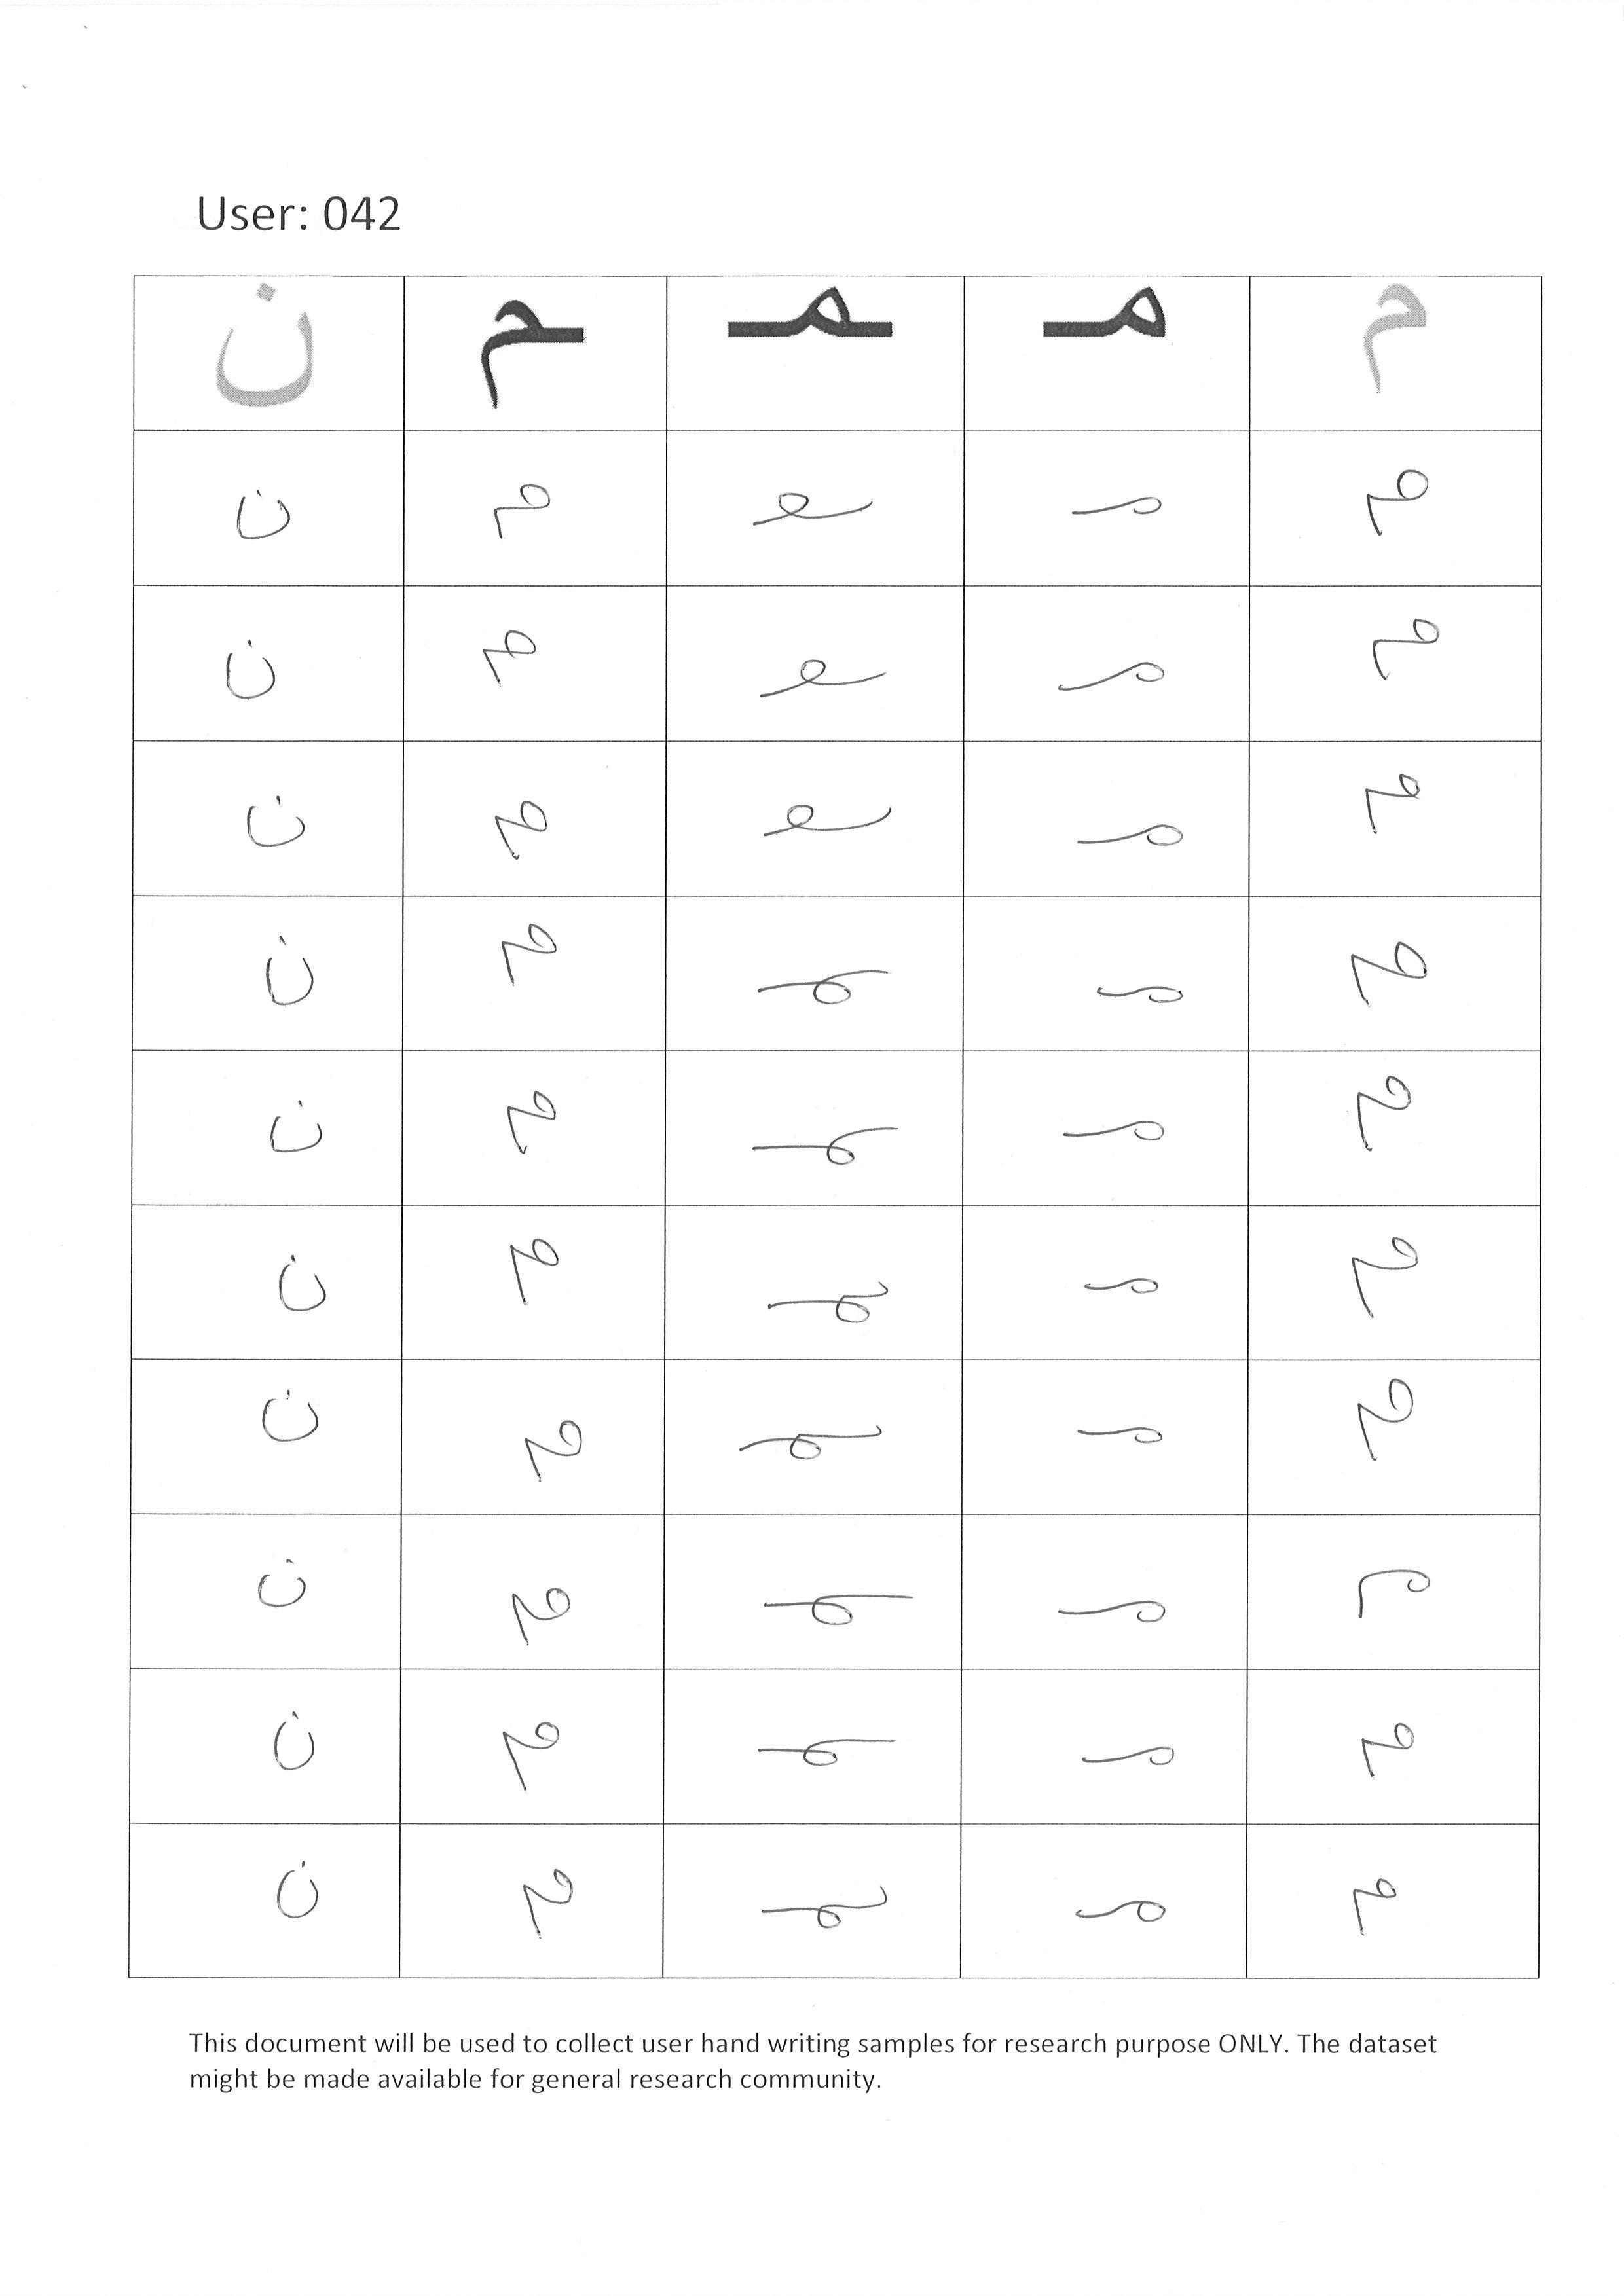 User: 042
م مـ ـمـ ـم ن
م مـ ـمـ ـم ن
م مـ ـمـ ـم ن
م مـ ـمـ ـم ن
م مـ ـمـ ـم ن
م مـ ـمـ ـم ن
م مـ ـمـ ـم ن
م مـ ـمـ ـم ن
م مـ ـمـ ـم ن
م مـ ـمـ ـم ن
م مـ ـمـ ـم ن
This document will be used to collect user hand writing samples for research purpose ONLY. The dataset
might be made available for general research community.